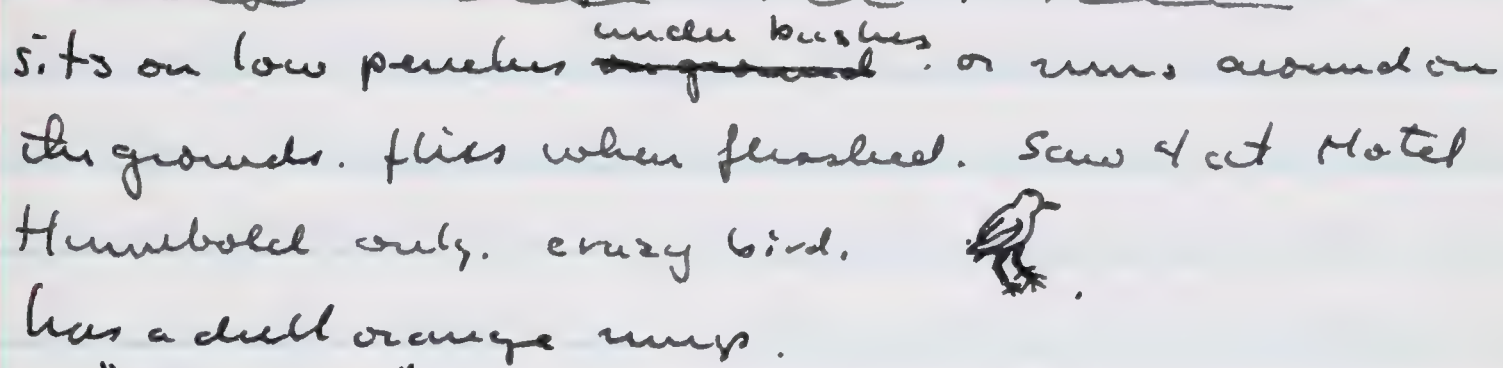 under bushes
sits on low perches on ground . or runs around on
the grounds. flies when flushed. Saw 4 at Hotel
Humebold only. crazy bird.
has a dull orange rump.